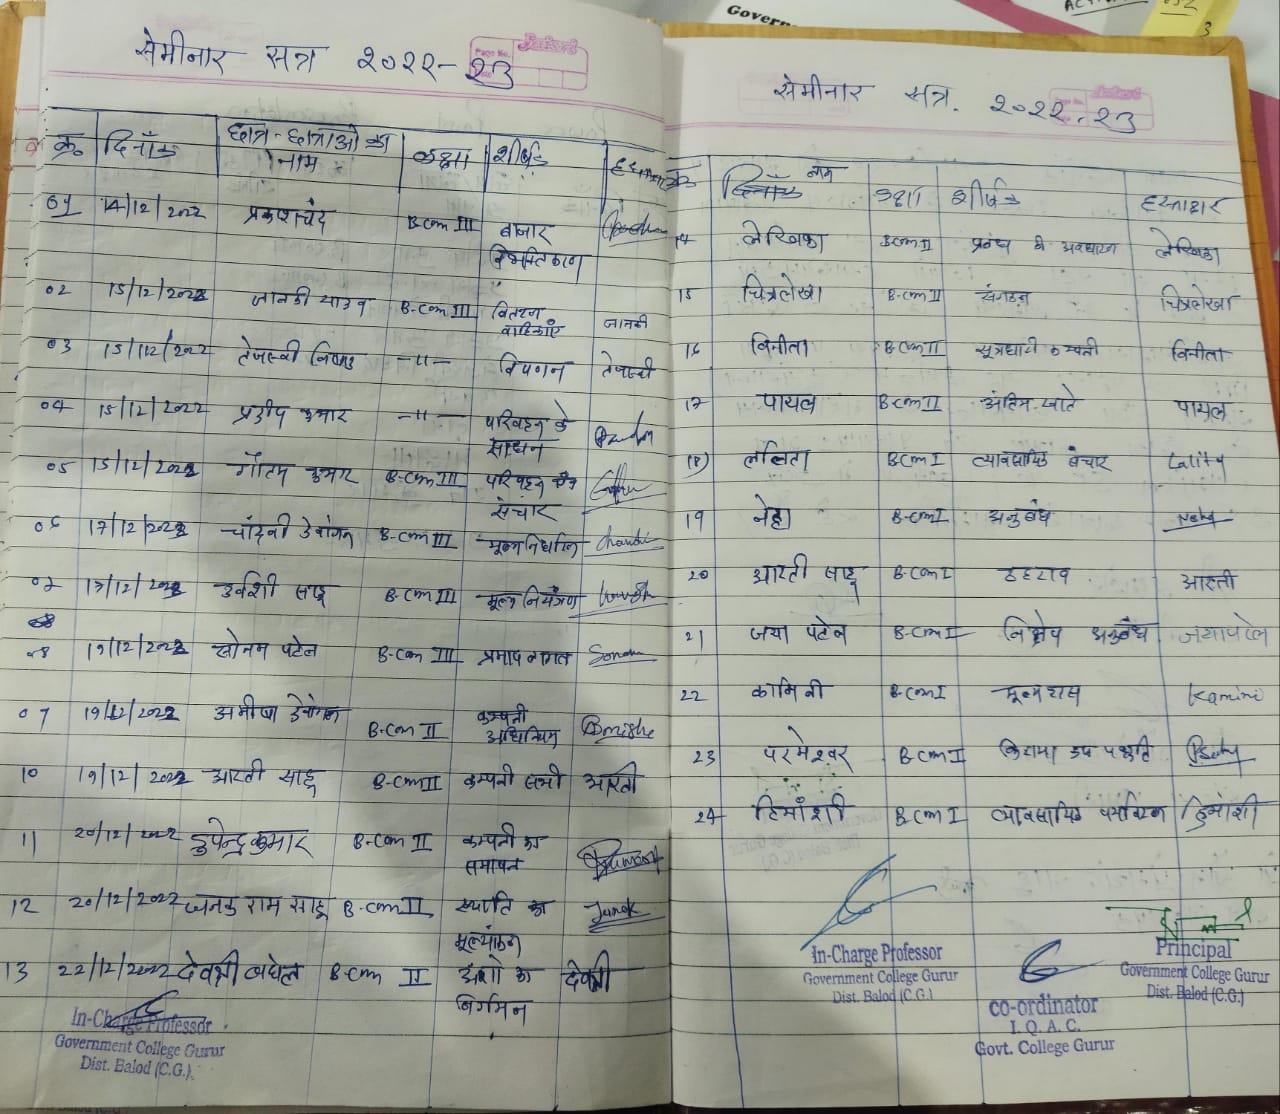 Govern
सेमीनार सत्र २०२२-२३
Page No.
क्र. दिनाँक छात्र-छात्राओ का नाम कक्षा शीर्षक हस्ताक्षर
01 14/12/2022 प्रकाशचंद B.Com III बाजार विभक्तिकरण
02 15/12/2022 जानकी यादव B.Com III वितरण वाहिकाएं जानकी
03 15/12/2022 तेजस्वी निषाद -11- विपणन तेजस्वी
04 15/12/2022 प्रदीप कुमार -11- परिवहन के साधन
05 15/12/2022 गौतम कुमार B.Com III परिवहन संचार
06 17/12/2022 चांदनी देवांगन B.Com III मूल्य निर्धारण Chandni
07 17/12/2022 उर्वशी साहू B.Com III मूल्य नियंत्रण
08 19/12/2022 सोनम पटेल B.Com III प्रमाप लागत Sonam
09 19/12/2022 अमीषा देवांगन B.Com II कम्पनी अधिनियम Amisha
10 19/12/2022 आरती साहू B.Com II कम्पनी सभी आरती
11 20/12/2022 डुपेन्द्र कुमार B.Com II कम्पनी का समापन
12 20/12/2022 जनक राम साहू B.Com II ख्याति का मूल्यांकन Janak
13 22/12/2022 देवश्री बघेल B.Com II अंशो का निर्गमन देवश्री
In-Charge Professor
Government College Gurur
Dist. Balod (C.G.)
सेमीनार सत्र. २०२२-२३
नाम कक्षा शीर्षक हस्ताक्षर
14 लेखिका B.Com II प्रबंध की अवधारणा लेखिका
15 चित्रलेखा B.Com II संगठन चित्रलेखा
16 विनीता B.Com II सूत्रधारी कम्पनी विनीता
17 पायल B.Com II अंतिम खाते पायल
18 ललिता B.Com I व्यावसायिक संचार Lality
19 नेहा B.Com I अनुबंध Neha
20 आरती साहू B.Com I ठहराव आरती
21 जया पटेल B.Com I निक्षेप अनुबंध जया पटेल
22 कामिनी B.Com I मूल्य ह्रास Kamini
23 परमेश्वर B.Com I किराया क्रय पद्धति
24 हिमांशी B.Com I व्यावसायिक पर्यावरण हिमांशी
In-Charge Professor
Government College Gurur
Dist. Balod (C.G.)
co-ordinator
I. Q. A. C.
Govt. College Gurur
Principal
Government College Gurur
Dist. Balod (C.G.)